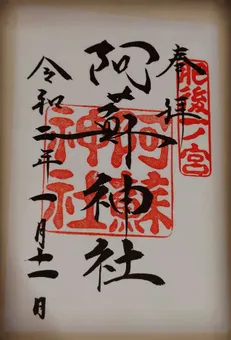 奉拝
肥後一ノ宮
阿蘇神社
阿蘇神社
令和二年一月十一日